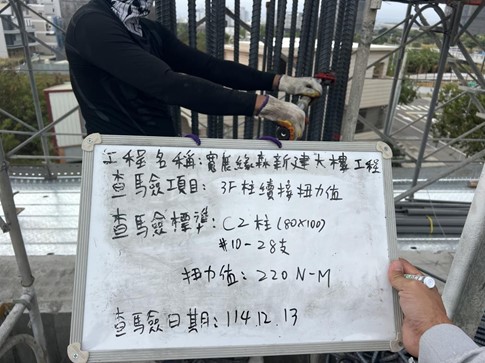 工程名稱：寬展綠森新建大樓工程
查驗項目：3F柱續接扭力值
查驗標準：C2柱(80×100)
#10-28支
扭力值：220 N-M
查驗日期：114.12.13